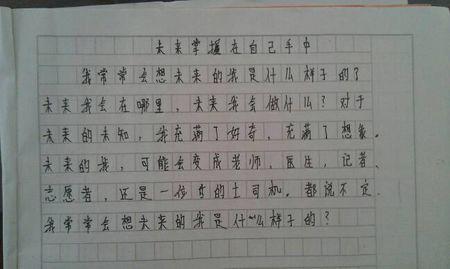 未来掌握在自己手中
我常常会想未来的我是什么样子的？
未来我会在哪里，未来我会做什么？对于
未来的未知，我充满了好奇，充满了想象。
未来的我，可能会变成老师、医生，记者、
志愿者，还是一位的士司机。都说不定。
我常常会想未来的我是什么样子的？